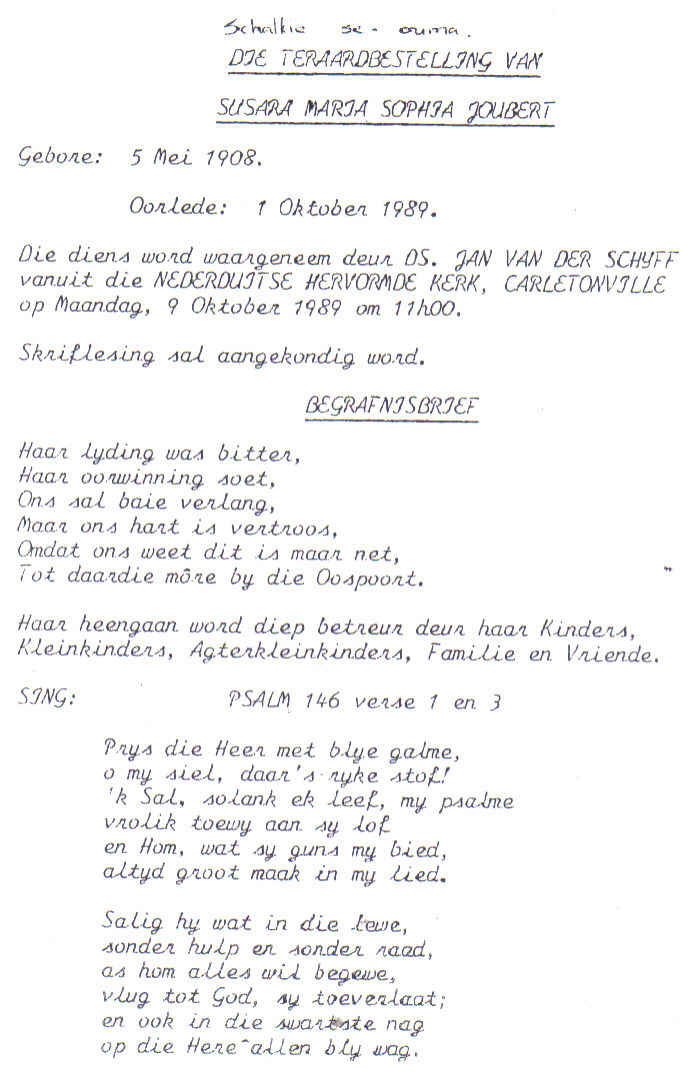 Schalkie se - ouma.
DIE TERAARDBESTELLING VAN
SUSARA MARIA SOPHIA JOUBERT
Gebore: 5 Mei 1908.
Oorlede: 1 Oktober 1989.
Die diens word waargeneem deur DS. JAN VAN DER SCHYFF
vanuit die NEDERDUITSE HERVORMDE KERK, CARLETONVILLE
op Maandag, 9 Oktober 1989 om 11h00.
Skriflesing sal aangekondig word.
BEGRAFNISBRIEF
Haar lyding was bitter,
Haar oorwinning soet,
Ons sal baie verlang,
Maar ons hart is vertroos,
Omdat ons weet dit is maar net,
Tot daardie môre by die Oospoort.
Haar heengaan word diep betreur deur haar Kinders,
Kleinkinders, Agterkleinkinders, Familie en Vriende.
SING: PSALM 146 verse 1 en 3
Prys die Heer met blye galme,
o my siel, daar's ryke stof!
'k Sal, solank ek leef, my psalme
vrolik toewy aan sy lof
en Hom, wat sy guns my bied,
altyd groot maak in my lied.
Salig hy wat in die lewe,
sonder hulp en sonder raad,
as hom alles wil begewe,
vlug tot God, sy toeverlaat;
en ook in die swartste nag
op die Here allen bly wag.